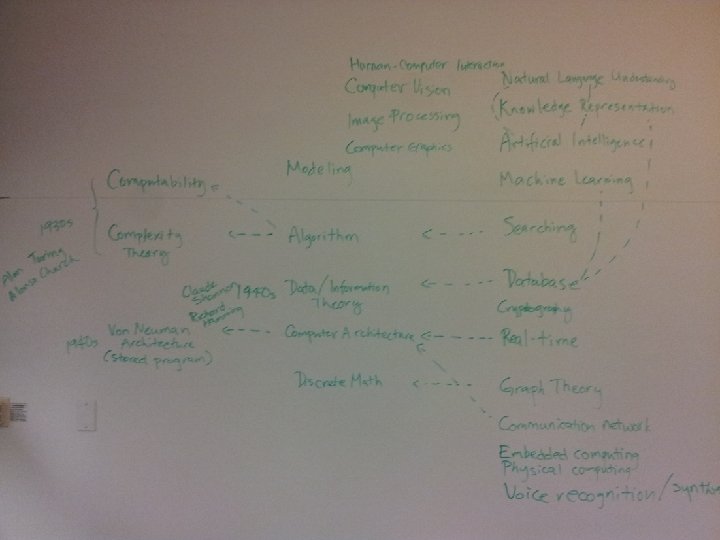 Human-Computer Interaction
Computer Vision
Image Processing
Computer Graphics
Natural Language Understanding
Knowledge Representation
Artificial Intelligence
Machine Learning
Modeling
Computability
1930s
Alan Turing
Alonso Church
Complexity
Theory
Algorithm
Searching
Claude
Shannon
Richard
Hamming
1940s
Data/Information
Theory
Database
Cryptography
1940s
Von Neuman
Architecture
(stored program)
Computer Architecture
Real-time
Discrete Math
Graph Theory
Communication network
Embedded computing
Physical computing
Voice recognition/